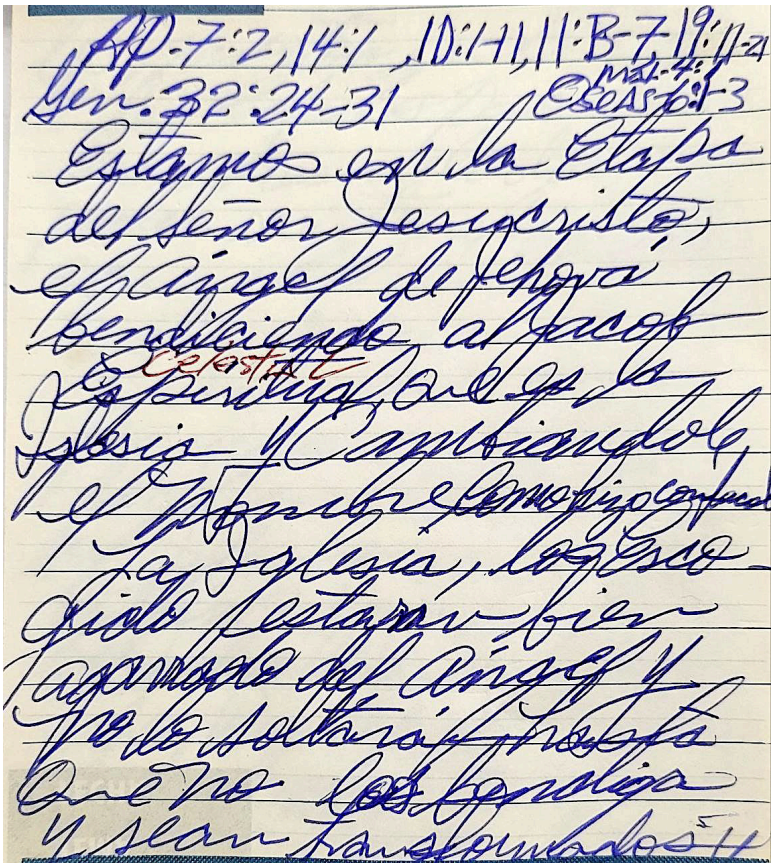 AP-7:2, 14:1, 10:1-11, 11:3-7, 19:11-21
Mal-4:1
Gen. 32:24-31 Oseas-6:1-3
Estamos en la Etapa
del Señor Jesucristo,
el Ángel de Jehová
bendiciendo al Jacob
Celestial
Espiritual que es la
Iglesia y Cambiandole
el Nombre como hizo con Jacob
La Iglesia, los esco-
gido estaran bien
agarrado del Ángel y
no lo soltará hasta
Que no los bendiga
y sean transformados"